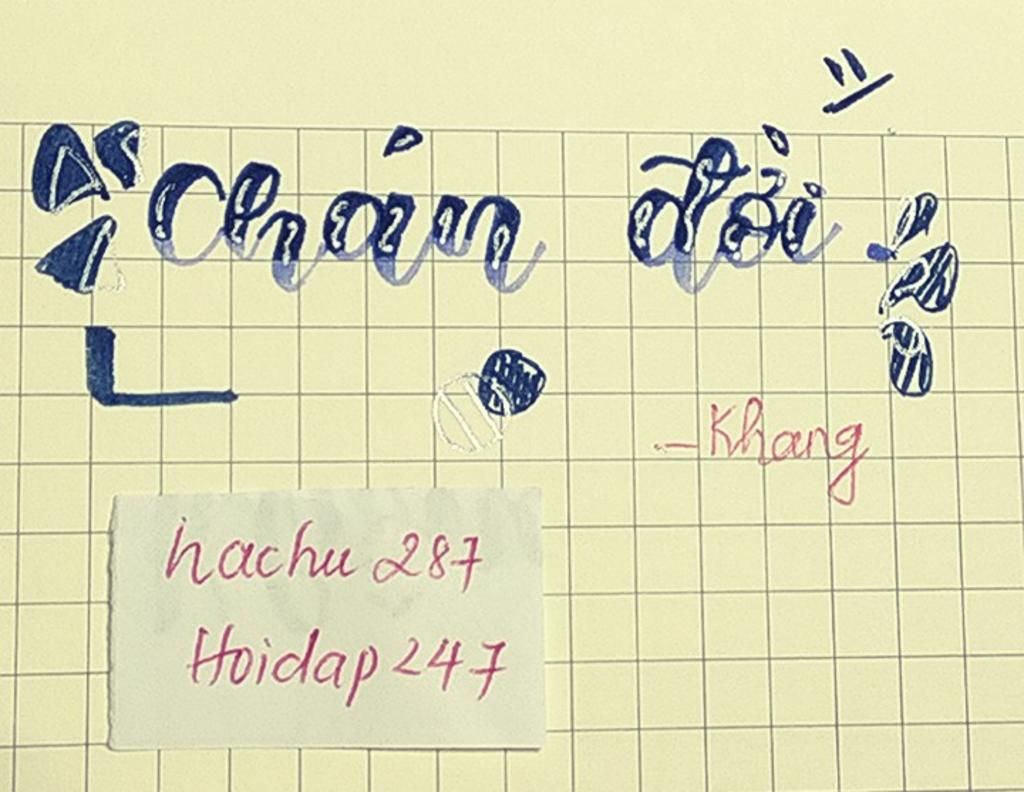 Chán đời
-Khang
hachu 287
Hoidap 247